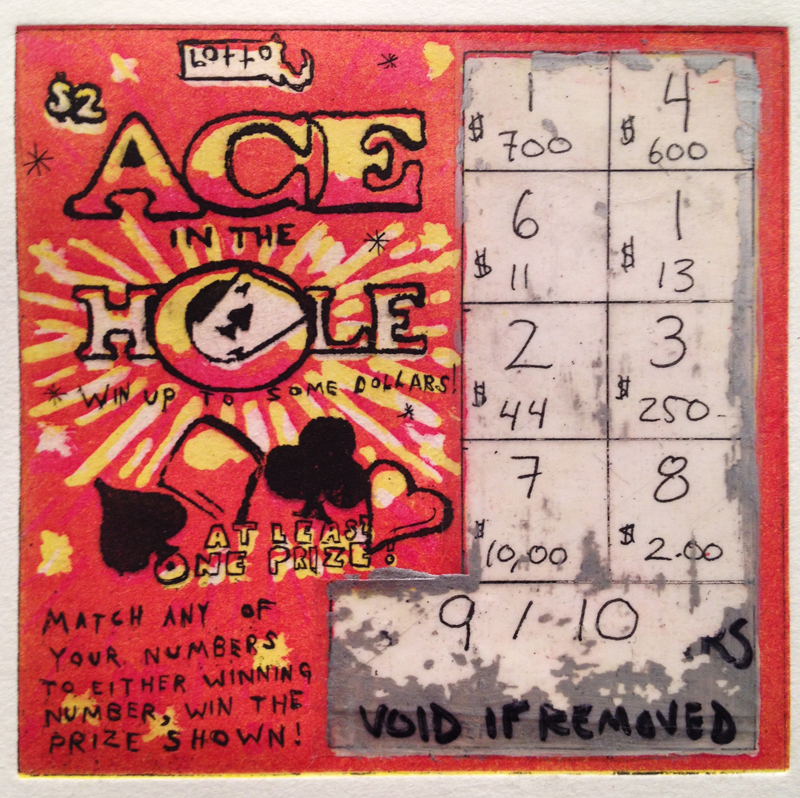 Lotto
$2
ACE
IN THE
HOLE
WIN UP TO SOME DOLLARS!
AT LEAST
ONE PRIZE!
MATCH ANY OF
YOUR NUMBERS
TO EITHER WINNING
NUMBER, WIN THE
PRIZE SHOWN!
1 4
$ 700 $ 600
6 1
$ 11 $ 13
2 3
$ 44 $ 250
7 8
$ 10,00 $ 2.00
9 / 10
RS
VOID IF REMOVED